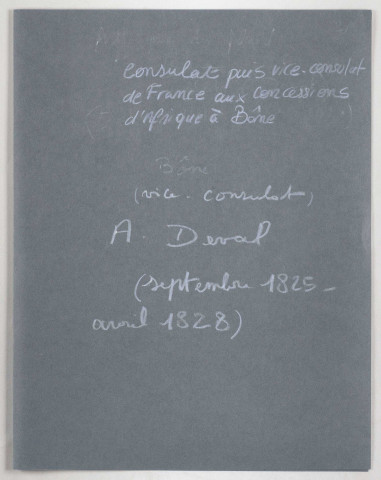 Consulat puis vice-consulat
de France aux concessions
d'Afrique à Bône
Bône
(vice-consulat)
A. Deval
(septembre 1825 -
avril 1828)